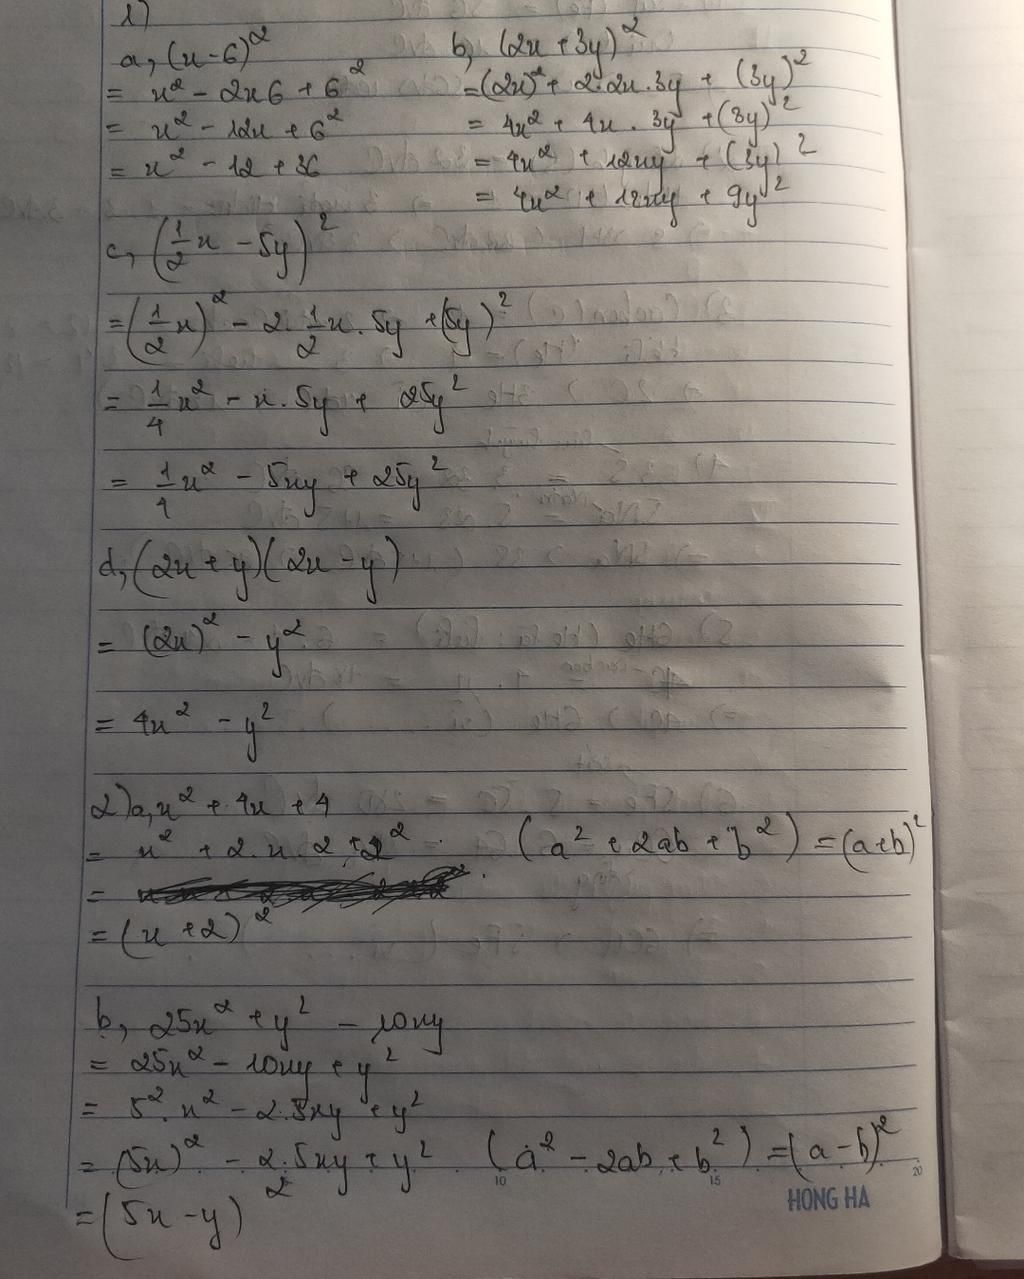 1)
a, (x-6)²
= x² - 2x6 + 6²
= x² - 12x + 6²
= x² - 12 + 36
b, (2x + 3y)²
= (2x)² + 2.2x.3y + (3y)²
= 4x² + 4x . 3y + (3y)²
= 4x² + 12xy + (3y)²
= 4x² + 12xy + 9y²
c, (1/2 x - 5y)²
= (1/2 x)² - 2. 1/2 x . 5y + (5y)²
= 1/4 x² - x . 5y + 25y²
= 1/4 x² - 5xy + 25y²
d, (2x + y)(2x - y)
= (2x)² - y²
= 4x² - y²
2) a, x² + 4x + 4
= x² + 2.x.2 + 2² (a² + 2ab + b²) = (a+b)²
=
= (x + 2)²
b, 25x² + y² - 10xy
= 25x² - 10xy + y²
= 5².x² - 2.5xy + y²
= (5x)² - 2.5xy + y² (a² - 2ab + b²) = (a - b)²
= (5x - y)²
10 15 20
HONG HA